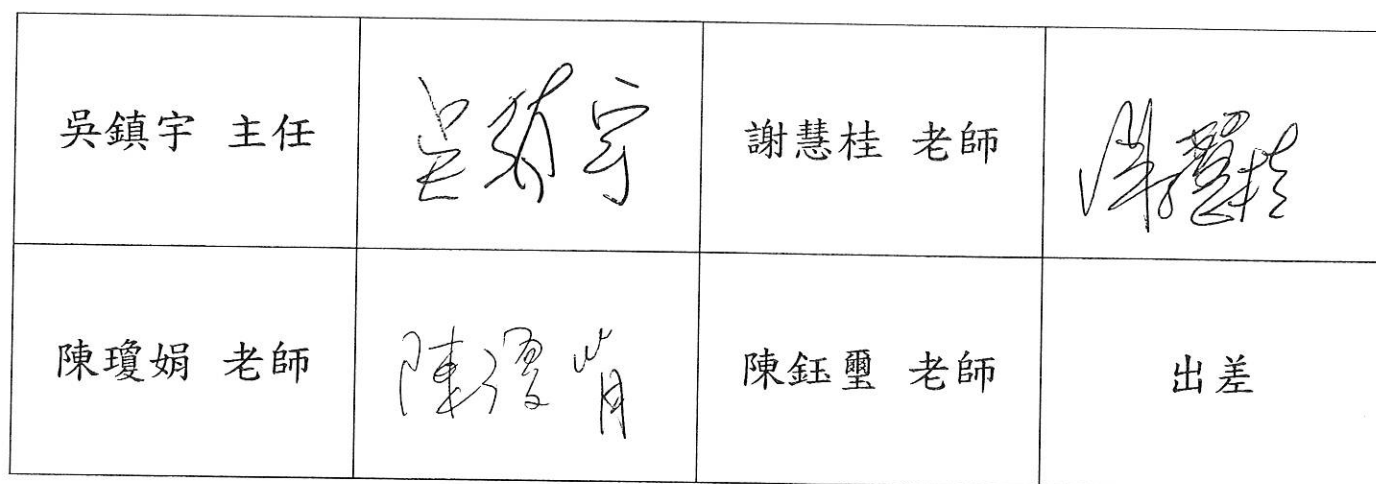 吳鎮宇 主任
吳鎮宇
謝慧桂 老師
謝慧桂
陳瓊娟 老師
陳瓊娟
陳鈺璽 老師
出差